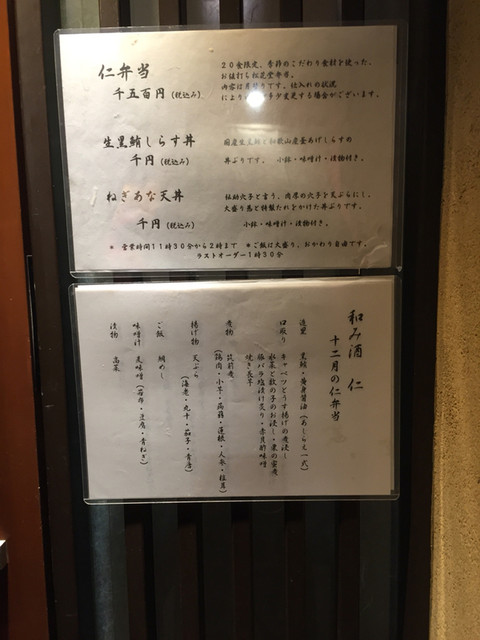 仁弁当
千五百円（税込み）
２０食限定、季節のこだわり食材を使った、
お値打ち松花堂弁当。
内容は月替りです。仕入れの状況
により 変更する場合がございます。
生黒鮪しらす丼
千円（税込み）
国産生黒鮪と和歌山産釜あげしらすの
丼ぶりです。 小鉢・味噌汁・漬物付き。
ねぎあな天丼
千円（税込み）
伝助穴子と言う、肉厚の穴子を天ぷらにし、
大盛り葱と特製たれをかけた丼ぶりです。
小鉢・味噌汁・漬物付き。
＊ 営業時間１１時３０分から２時まで ＊ご飯は大盛り、おかわり自由です。
ラストオーダー１時３０分
和み酒 仁
十二月の仁弁当
造里 黒鮪・黄身醤油（あしらえ一式）
口取り キャベツとうす揚げの煮浸し
松菜と数の子のお浸し・栗の蜜煮
豚バラ塩漬け炙り・赤貝酢味噌
焼き長芋
煮物 筑前煮
（鶏肉・小芋・蒟蒻・蓮根・人参・枝豆）
揚げ物 天ぷら
（海老・丸十・茄子・青唐）
ご飯 鯛めし
味噌汁 麦味噌（若布・豆腐・青ねぎ）
漬物 高菜